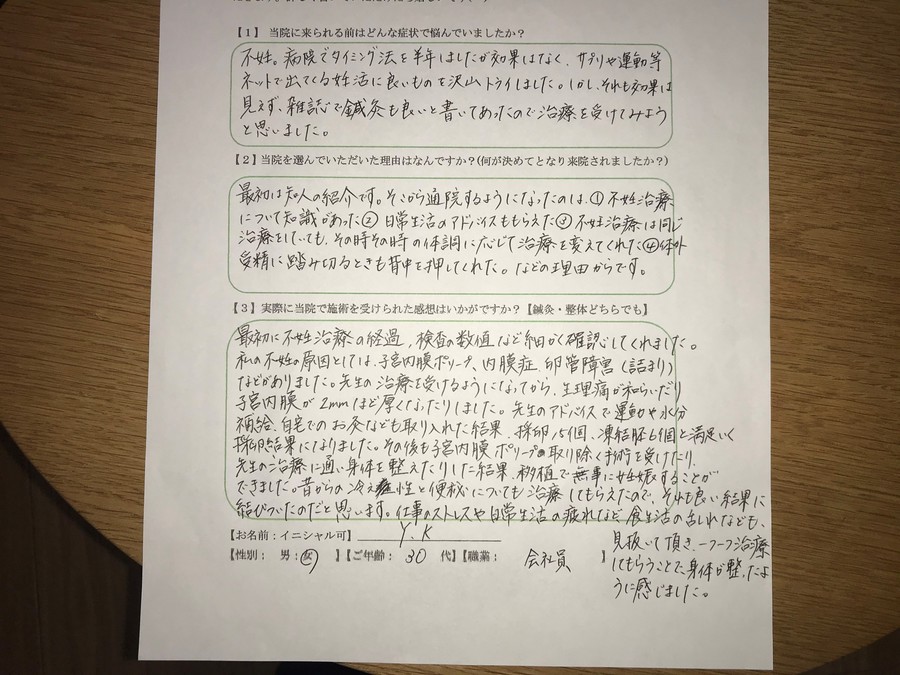 【1】 当院に来られる前はどんな症状で悩んでいましたか？
不妊。病院でタイミング法を半年しましたが効果はなく、サプリや運動等
ネットで出てくる妊活に良いものを沢山トライしました。しかし、それも効果は
見えず、雑誌で鍼灸も良いと書いてあったので治療を受けてみよう
と思いました。
【2】当院を選んでいただいた理由はなんですか？(何が決めてとなり来院されましたか？)
最初は知人の紹介です。そこから通院するようになったのは、①不妊治療
について知識があった②日常生活のアドバイスももらえた③不妊治療は同じ
治療をしていても、その時その時の体調に応じて治療を変えてくれた④体外
受精に踏み切るときも背中を押してくれた。などの理由からです。
【3】実際に当院で施術を受けられた感想はいかがですか？【鍼灸・整体どちらでも】
最初に不妊治療の経過、検査の数値など細かく確認してくれました。
私の不妊の原因としては、子宮内膜ポリープ、内膜症、卵管障害（詰まり）
などがありました。先生の治療を受けるようになってから、生理痛が和らいだり
子宮内膜が2mmほど厚くなったりしました。先生のアドバイスで運動や水分
補給、自宅でのお灸なども取り入れた結果、採卵15個、凍結胚6個と満足いく
採卵結果になりました。その後も子宮内膜ポリープの取り除く手術を受けたり、
先生の治療に通い身体を整えたりした結果、移植で無事に妊娠することが
できました。昔からの冷え性と便秘についても治療してもらえたので、それも良い結果に
結びついたのだと思います。仕事のストレスや日常生活の疲れなど食生活の乱れなども、
見抜いて頂き、一つ一つ治療
してもらうことで、身体が整ったよ
うに感じました。
【お名前：イニシャル可】 Y.K
【性別： 男：女 】【ご年齢： 30 代】【職業： 会社員 】